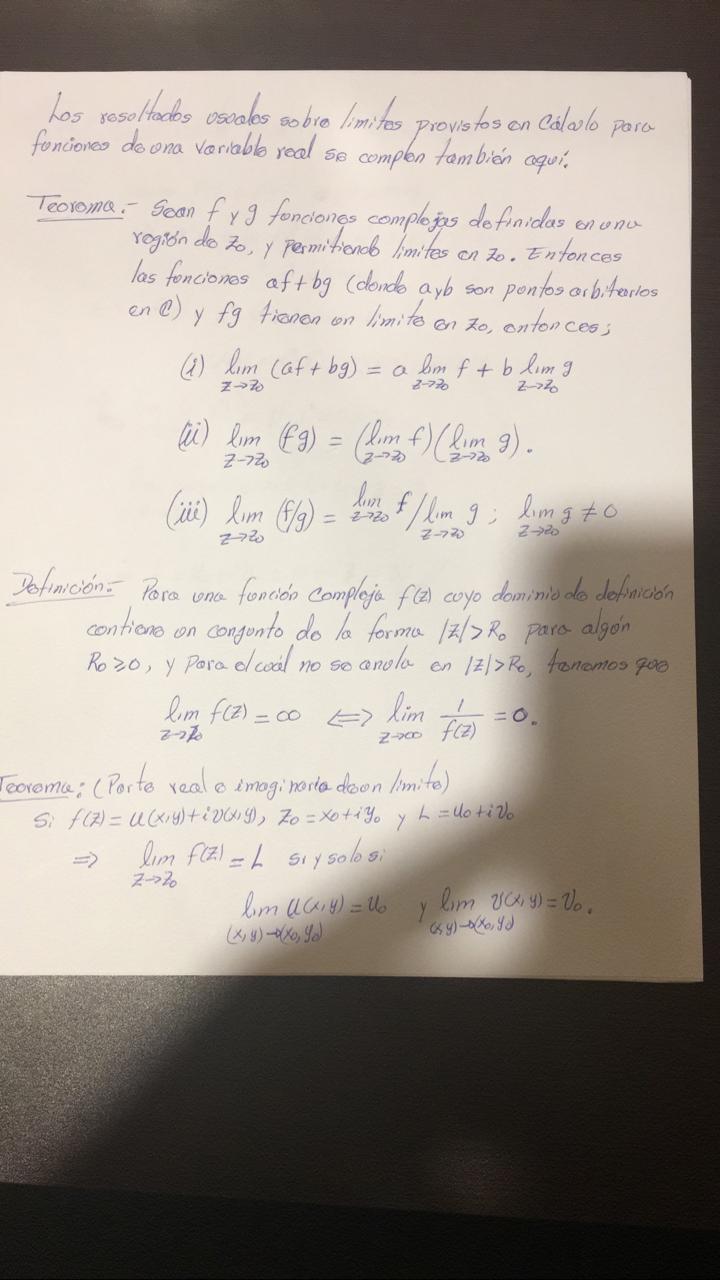 Los resultados usuales sobre limites provistos en Cálculo para
funciones de una variable real se cumplen también aquí.
Teorema.- Sean f y g funciones complejas definidas en una
región de z₀, y permitiendo limites en z₀. Entonces
las funciones af+bg (donde a y b son puntos arbitarios
en ℂ) y fg tienen un limite en z₀, entonces;
(i) lim_{z→z₀} (af + bg) = a lim_{z→z₀} f + b lim_{z→z₀} g
(ii) lim_{z→z₀} (fg) = (lim_{z→z₀} f)(lim_{z→z₀} g).
(iii) lim_{z→z₀} (f/g) = lim_{z→z₀} f / lim_{z→z₀} g ; lim_{z→z₀} g ≠ 0
Definición.- Para una función compleja f(z) cuyo dominio de definición
contiene un conjunto de la forma |z|>R₀ para algún
R₀≥0, y para el cuál no se anula en |z|>R₀, tenemos que
lim_{z→z₀} f(z) = ∞ ⟺ lim_{z→∞} 1/f(z) = 0.
Teorema: (Parte real e imaginaria de un limite)
Si f(z) = u(x,y)+iv(x,y), z₀ = x₀+iy₀ y L = u₀+iv₀
⇒ lim_{z→z₀} f(z) = L si y solo si
lim_{(x,y)→(x₀,y₀)} u(x,y) = u₀ y lim_{(x,y)→(x₀,y₀)} v(x,y) = v₀.